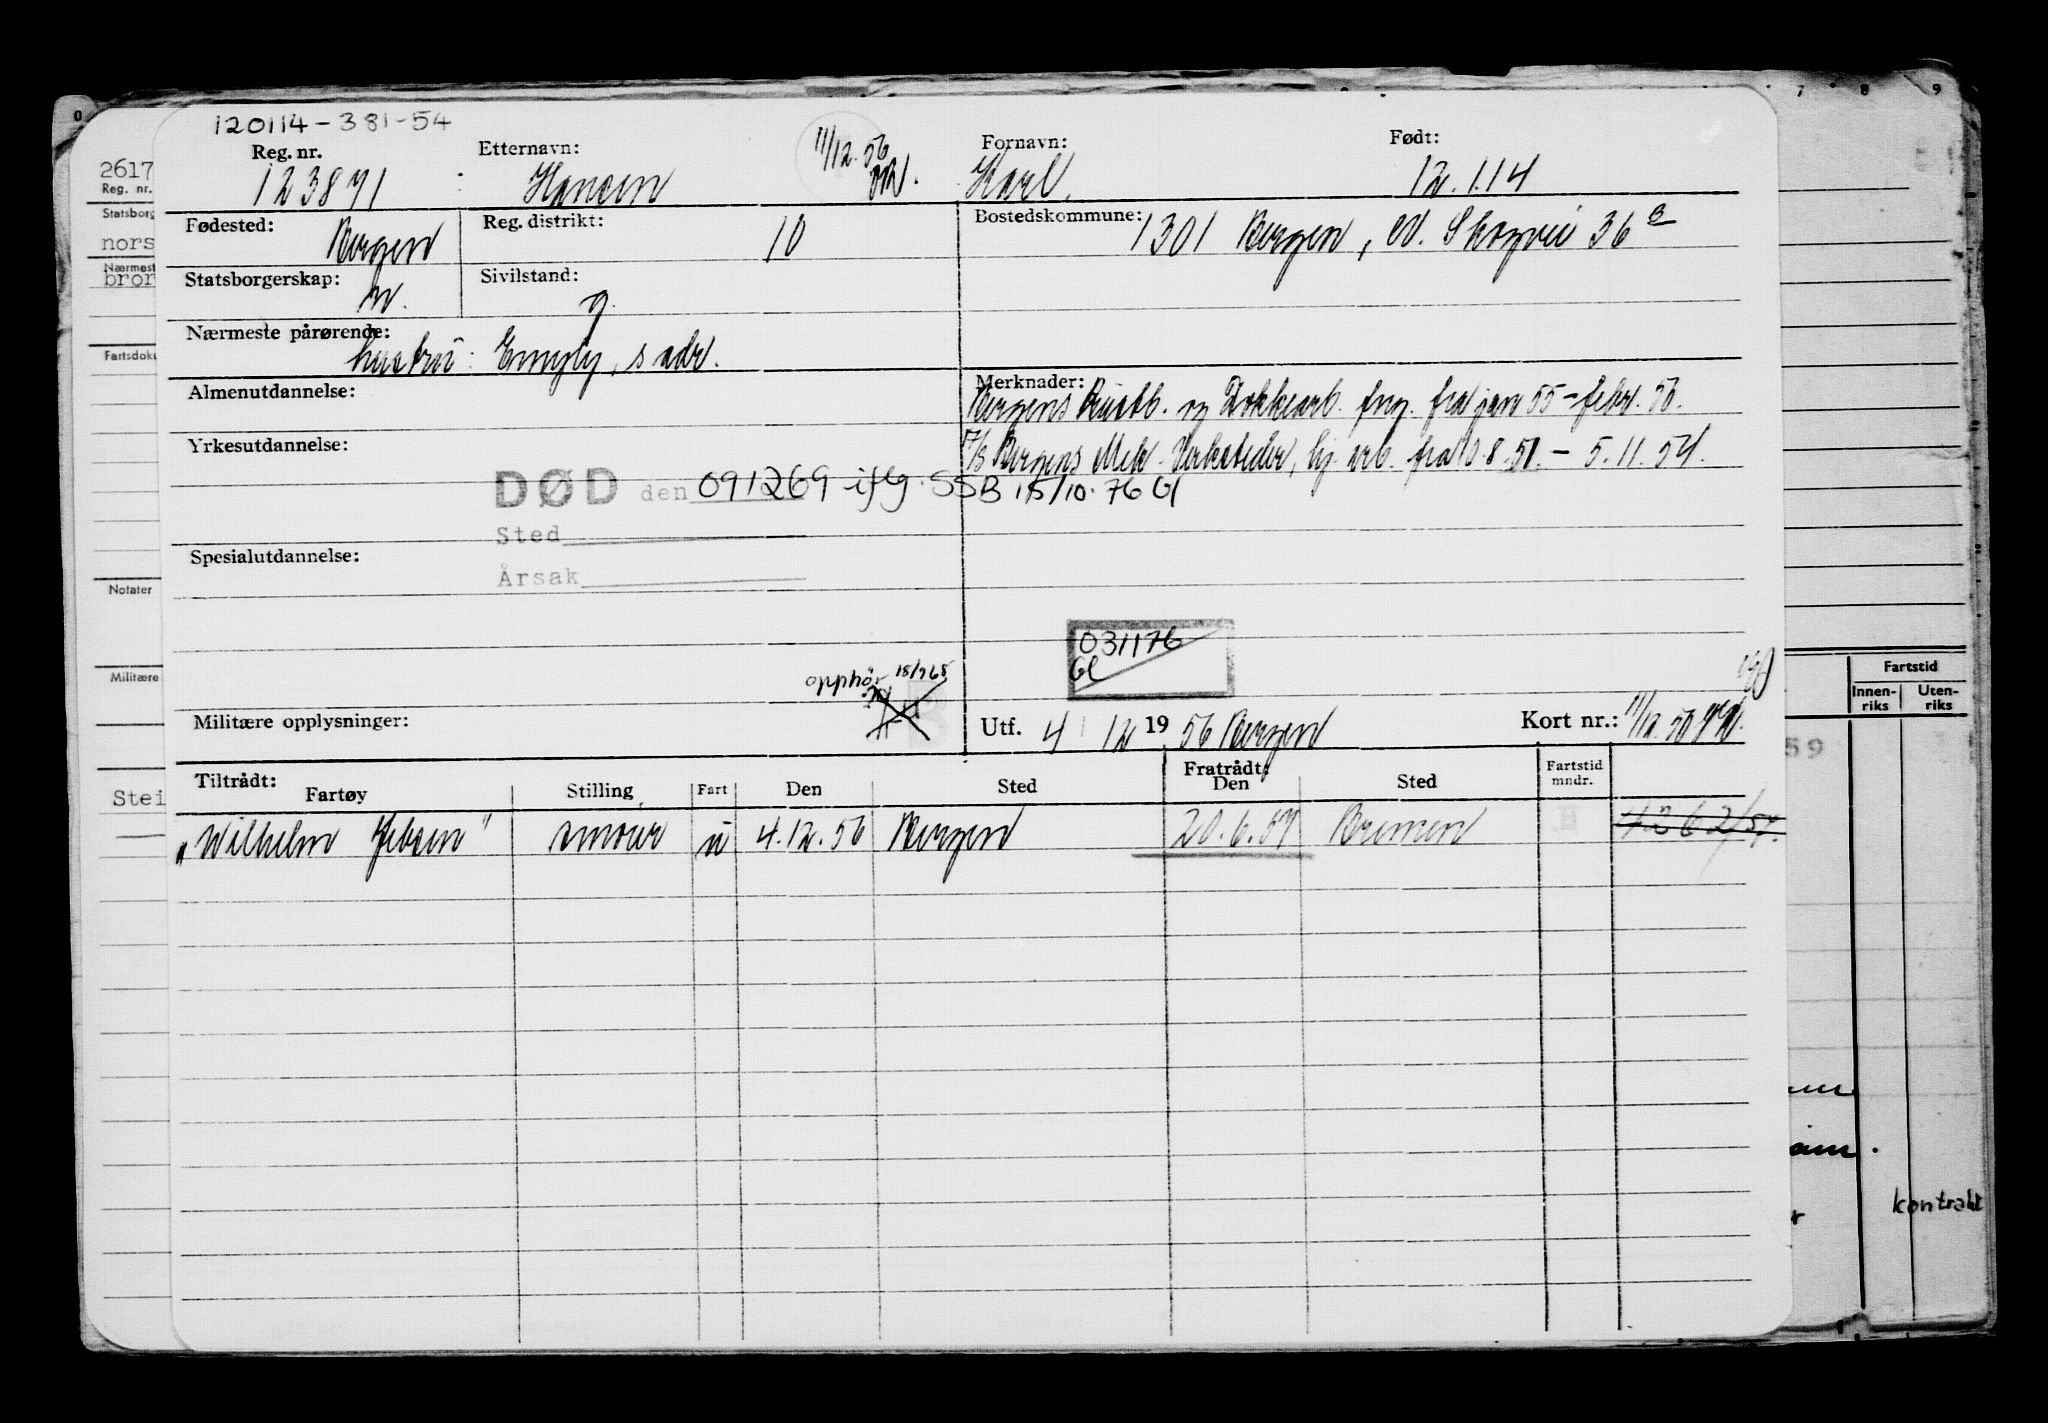 120114-381-54
Reg. nr. Etternavn: 11/12.56 Fornavn: Født:
123871 Hansen Karl. 12.1.14
Fødested: Bergen Reg. distrikt: 10 Bostedskommune: 1301 Bergen, Skogvei 36 B
Statsborgerskap: n. Sivilstand: g.
Nærmeste pårørende: hustru: s adr.
Almenutdannelse: Merknader: Bergens og Dokkearb. fra jan 55 - febr. 56.
Yrkesutdannelse: Bergens Mek. Verksteder, hj. arb. fra - 5.11.54.
DØD den 091269 iflg. SSB 15/10.76 Gl
Sted
Spesialutdannelse: Årsak
031176
Gl
opphør 18/9 65
Militære opplysninger: Utf. 4 / 12 19 56 Bergen Kort nr.:
Tiltrådt: Fratrådt:
Fartøy Stilling Fart Den Sted Den Sted Fartstid mndr.
"Wilhelm Jebsen" smører u 4.12.56 Bergen 20.6.57 Bremen
0 7 8 9
2617
Reg. nr.
Statsborg
nors
Nærmest
bror
Fartsdoku
Notater
Militære
Stei
Fartstid
Innen-riks Uten-riks
59
kontrakt